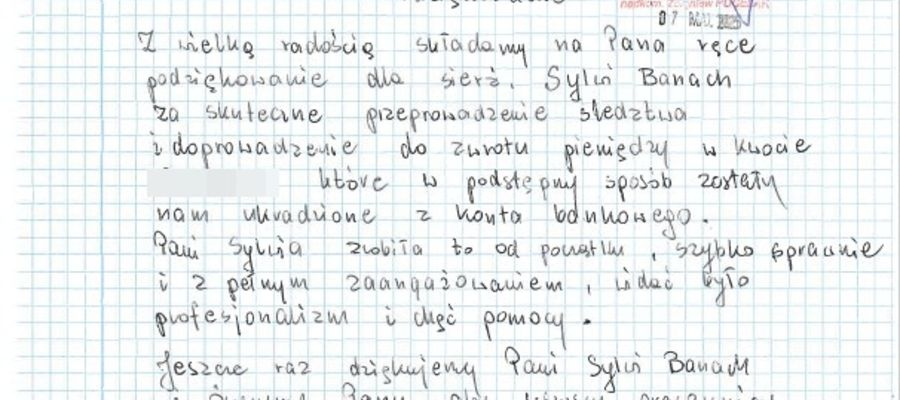 07 MAJ 2025
Z wielką radością składamy na Pana ręce
podziękowanie dla sierż. Sylwii Banach
za skuteczne przeprowadzenie śledztwa
i doprowadzenie do zwrotu pieniędzy w kwocie
które w podstępny sposób zostały
nam ukradzione z konta bankowego.
Pani Sylwia zrobiła to od początku, szybko sprawnie
i z pełnym zaangażowaniem, widać było
profesjonalizm i chęć pomocy.
Jeszcze raz dziękujemy Pani Sylwii Banach